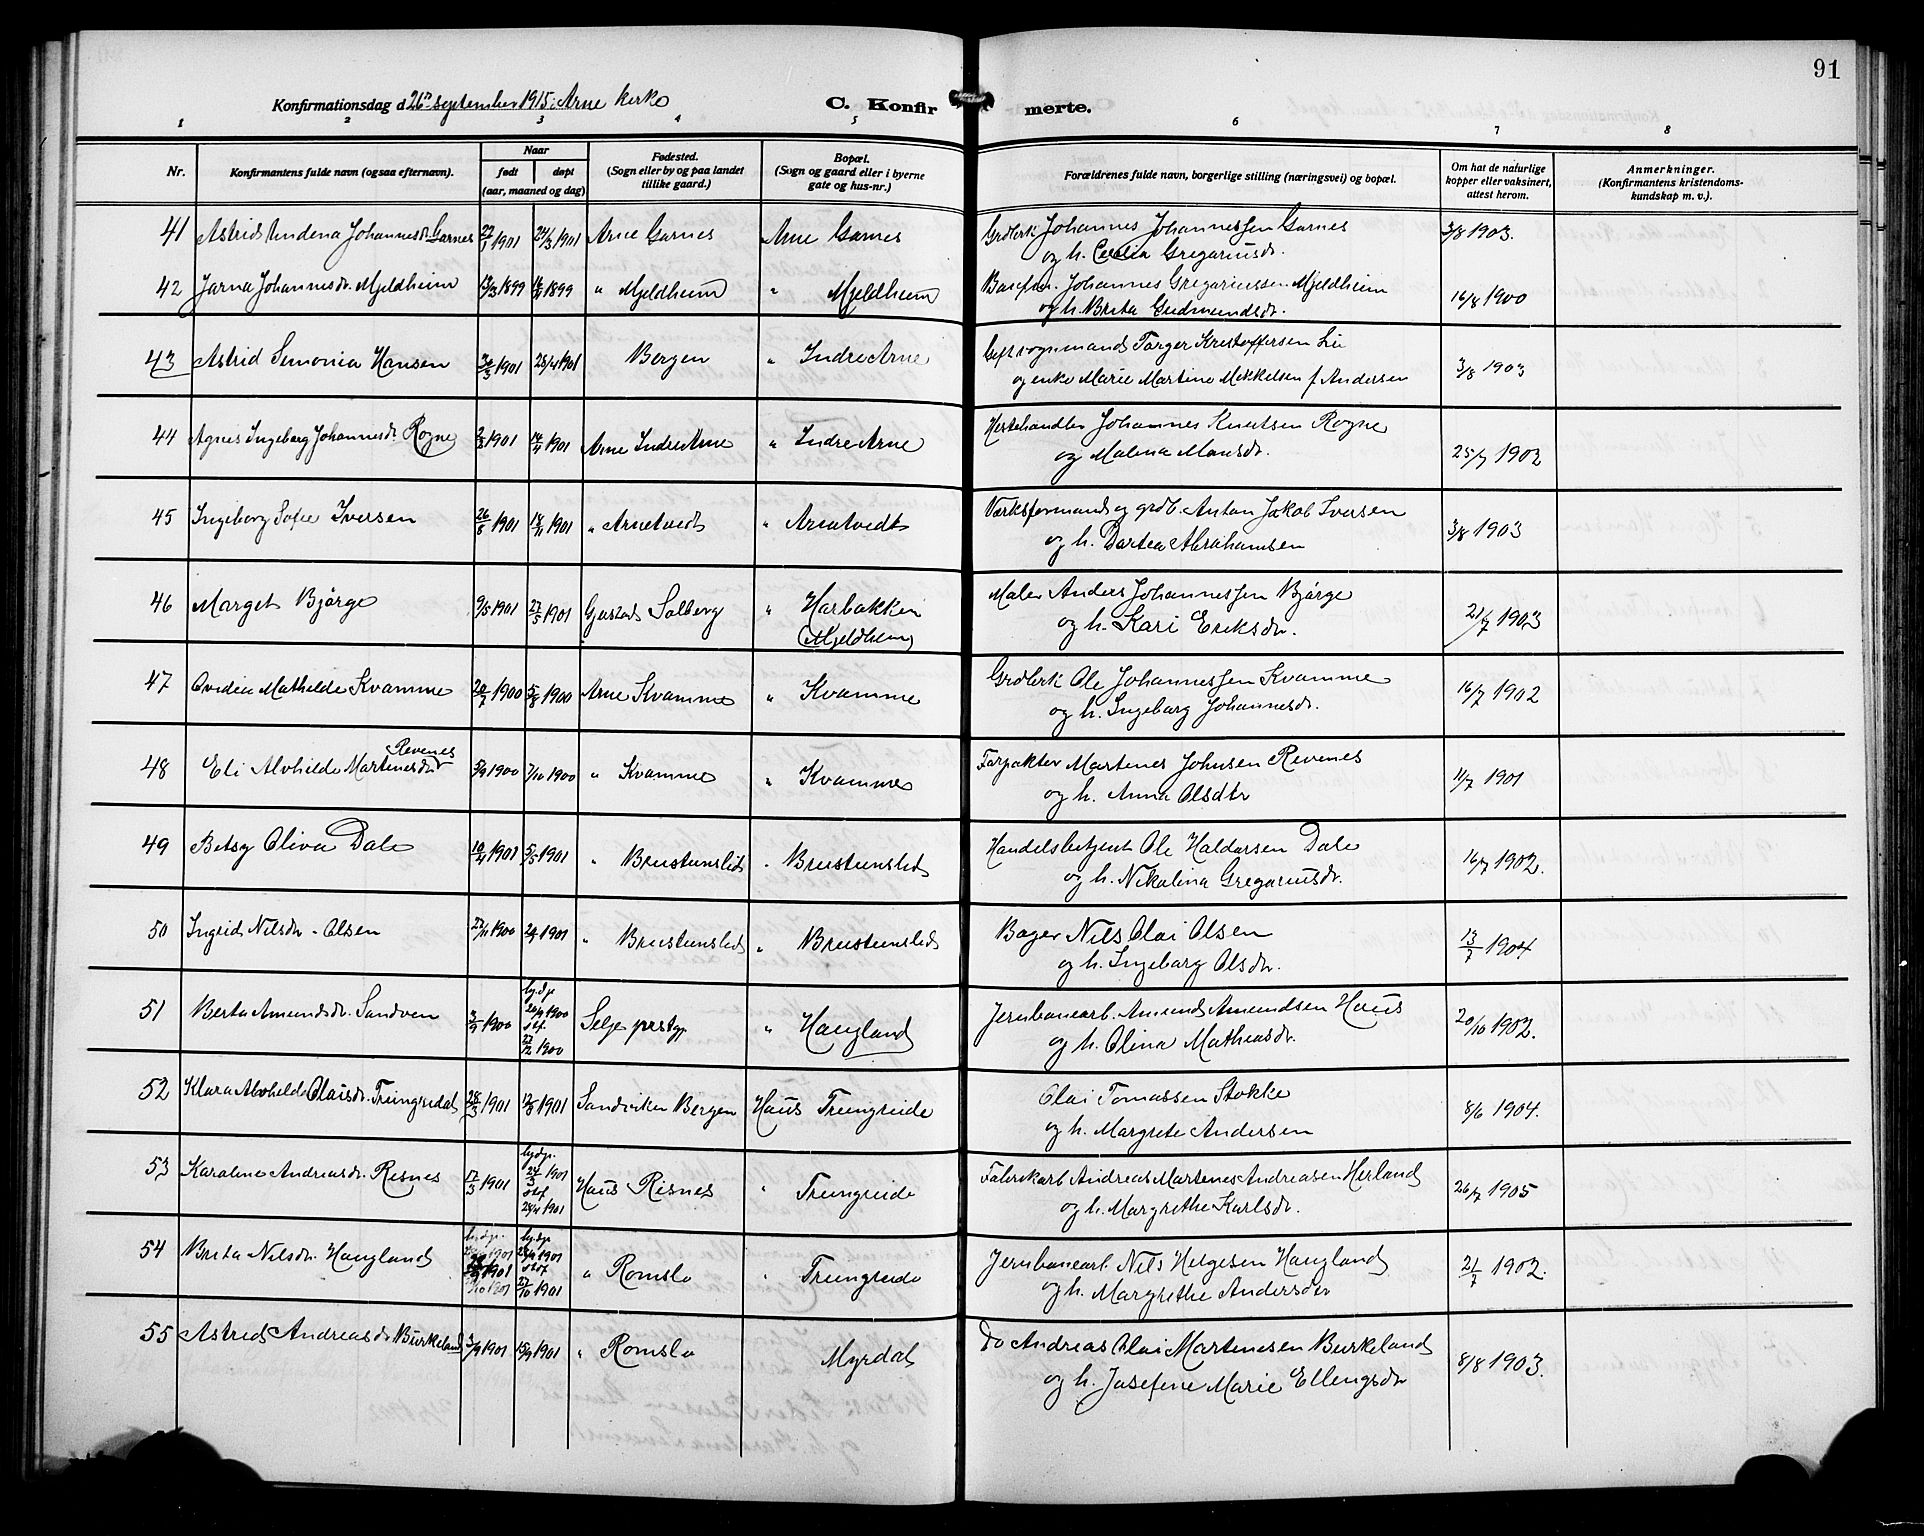 91
Konfirmationsdag d. 26de september 1915 i Arne kirke
C. Konfirmerte.
1 2 3 4 5 6 7 8
Nr.
Konfirmantens fulde navn (ogsaa efternavn).
Naar
født døpt
(aar, maaned og dag)
Fødested.
(Sogn eller by og paa landet
tillike gaard.)
Bopæl.
(Sogn og gaard eller i byerne
gate og hus-nr.)
Forældrenes fulde navn, borgerlige stilling (næringsvei) og bopæl.
Om hat de naturlige
kopper eller vaksinert,
attest herom.
Anmerkninger.
(Konfirmantens kristendoms-
kundskap m. v.).
41 Astrid Andena Johannesdr. Garnes 22/1 1901 24/3 1901 Arne Garnes Arne Garnes Grdbrk Johannes Johannessen Garnes 3/8 1903.
og h. Cecilia Gregariusdr.
42 Jarna Johannesdr. Mjeldheim 13/3 1899 1899 " Mjeldheim " Mjeldheim Johannes Gregariussen Mjeldheim 16/8 1900
og h. Brita Gudmundsdr.
43 Astrid Simonia Hansen 30/3 1901 28/4 1901 Bergen " Indre Arne Torger Kristoffersen Lie 3/8 1903
og enke Marie Martine Mikkelsen f. Andersen
44 Agnes Ingeborg Johannesdr. Rogne 2/3 1901 14/4 1901 Arne Indre Arne " Indre Arne Hestehandler Johannes Knutsen Rogne
og Malena Monsdr. 25/7 1902
45 Ingeborg Sofie Iversen 26/8 1901 1901 " Arnetvedt " Arnatvedt Værksformand og grdb. Anton Jakob Iversen 3/8 1903
og h. Dortea Abrahamsen
46 Marget Bjørge 9/5 1901 27/5 1901 Gjestad Solberg " Harbakken Maler Anders Johannessen Bjørge 21/7 1903
(Mjeldheim) og h. Kari Eriksdr.
47 Ovidia Mathilde Kvamme 20/7 1900 5/8 1900 Arne Kvamme " Kvamme Grdbrk Ole Johannessen Kvamme 16/7 1902
og h. Ingeborg Johannesdr.
48 Eli Alvhilde Martinesdr. Revenes 5/9 1900 7/10 1900 " Kvamme " Kvamme Forpakter Martines Johnsen Revenes 11/7 1901
og h. Anna Olsdtr
49 Betsy Oliva Dale 10/4 1901 5/5 1901 " Brustunslid " Brustunslid Handelsbetjent Ole Haldorsen Dale 16/7 1902.
og h. Nikolina Gregariusdr.
50 Ingrid Nilsdr. Olsen 27/11 1900 1901 " Brustunslid " Brustunslid Bager Nils Olai Olsen 13/7 1904
og h. Ingeborg Olsdr.
51 Berta Amundsdr. Sandven 1900 hj.dp. 1900 stf. 1900 Selje prstgj. " Haugland Jernbanearb. Amund Amundsen Haus 20/10 1902.
og h. Olina Mathiasdr.
52 Klara Alvhilde Olaisdr. Trengreidal 28/3 1901 1901 Sandviken Bergen Haus Trengreide Olai Tomassen Stokke 8/6 1904.
og h. Margrete Andersen
53 Karoline Andreasdr. Risnes 17/3 1901 hj.dp. 24/3 1901 stf. 28/4 1901 Haus Risnes " Trengreide Fabrikarb Andreas Martines Andreasen Herland 26/7 1905
og h. Margrethe Karlsdr.
54 Brita Nilsdr. Haugland 1901 hj.dp. 1901 stf. 27/10 1901 " Romslo " Trengreide Jernbanearb. Nils Helgesen Haugland 21/7 1902.
og h. Margrethe Andersdr
55 Astrid Andreasdr Birkeland 3/9 1901 15/9 1901 " Romslo Myrdal Do Andreas Olai Martinesen Birkeland 8/8 1903.
og h. Josefine Marie Ellingsdr